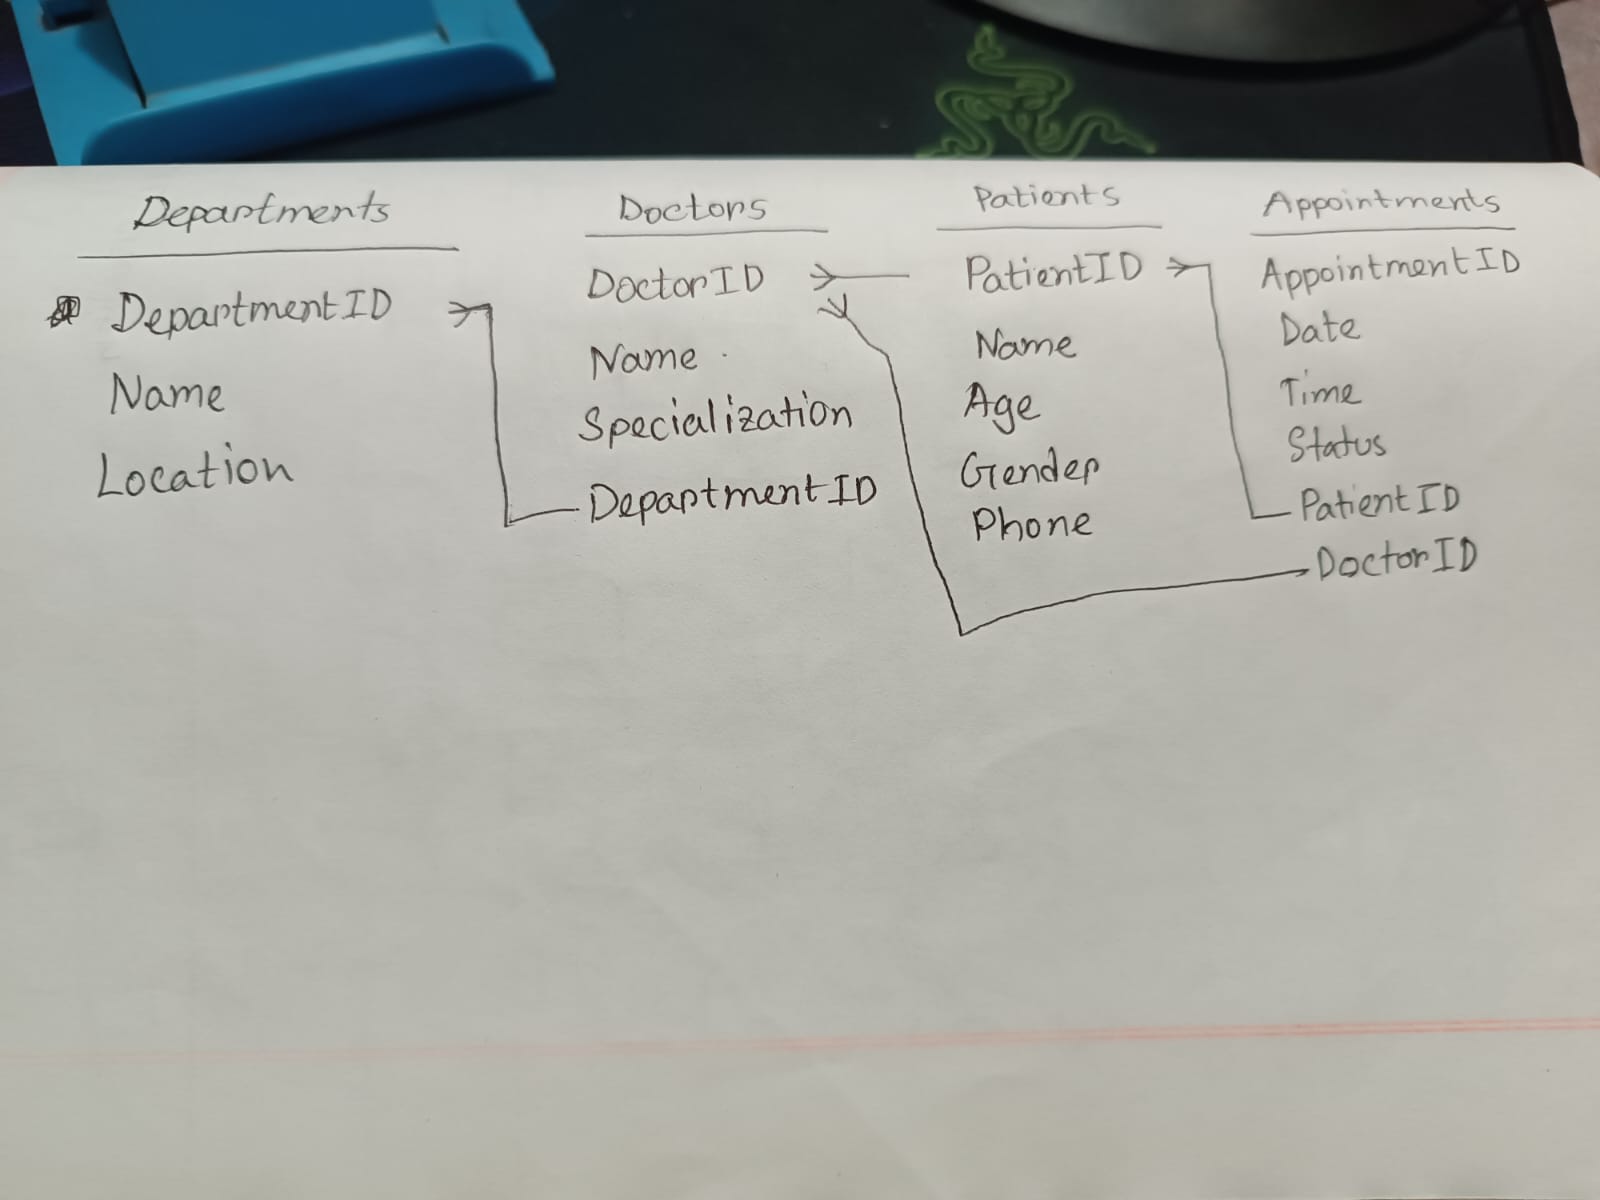 Departments
DepartmentID
Name
Location
Doctors
DoctorID
Name
Specialization
DepartmentID
Patients
PatientID
Name
Age
Gender
Phone
Appointments
AppointmentID
Date
Time
Status
PatientID
DoctorID